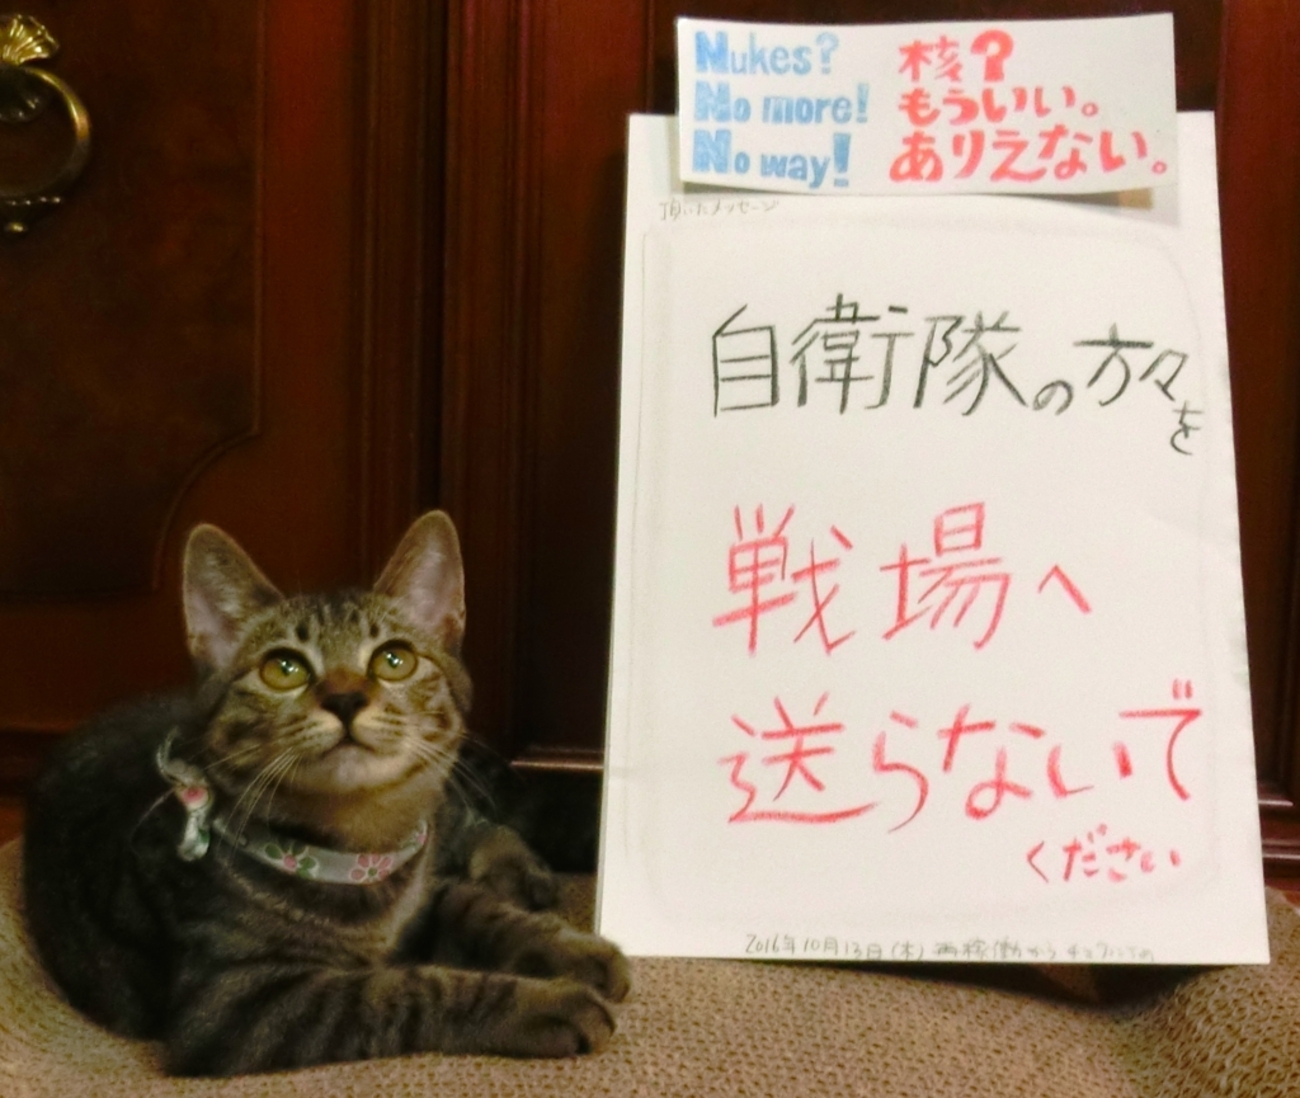 Nukes?
No more!
No way!
核?
もういい。
ありえない。
頂いたメッセージ
自衛隊の方々
を
戦場へ
送らないで
ください
2016年10月13日(木) 再稼働から